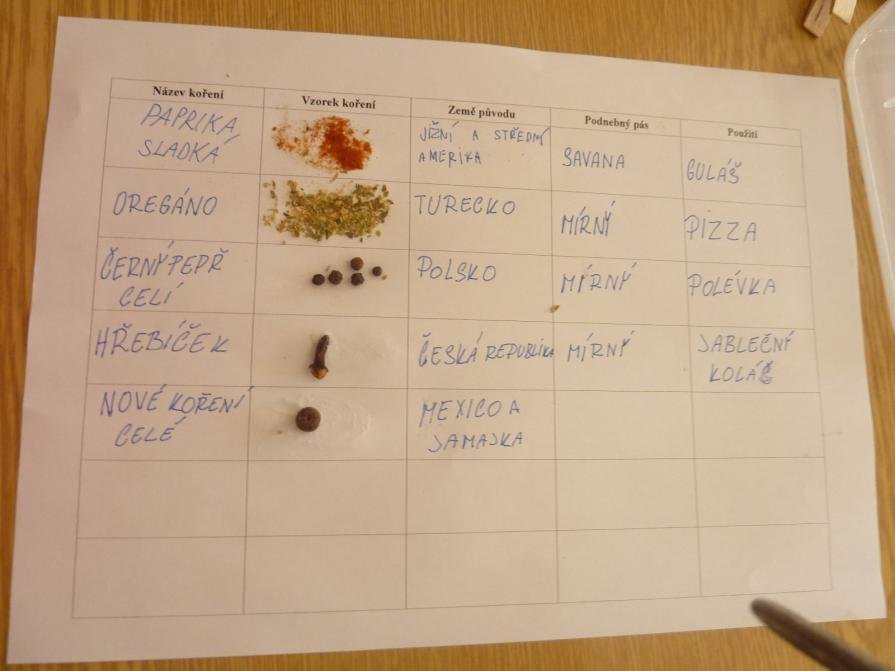 Název koření Vzorek koření Země původu Podnebný pás Použití
PAPRIKA SLADKÁ JIŽNÍ A STŘEDNÍ AMERIKA SAVANA GULÁŠ
OREGÁNO TURECKO MÍRNÝ PIZZA
ČERNÝ PEPŘ CELÍ POLSKO MÍRNÝ POLÉVKA
HŘEBÍČEK ČESKÁ REPUBLIKA MÍRNÝ JABLEČNÝ KOLÁČ
NOVÉ KOŘENÍ CELÉ MEXICO A JAMAJKA